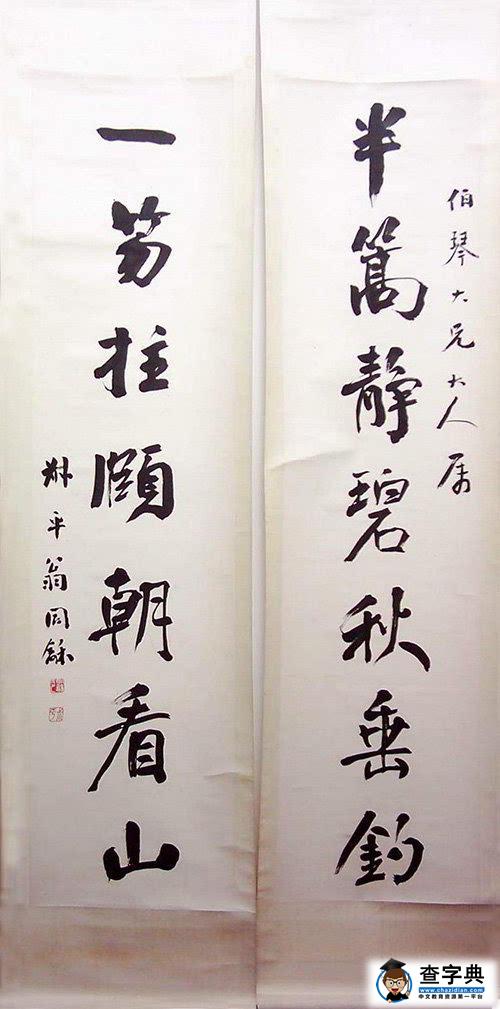 伯琴大兄大人属
半篙靜碧秋垂釣
一笏拄頤朝看山
叔平翁同龢
查字典
www.chazidian.com
中文教育资源第一平台